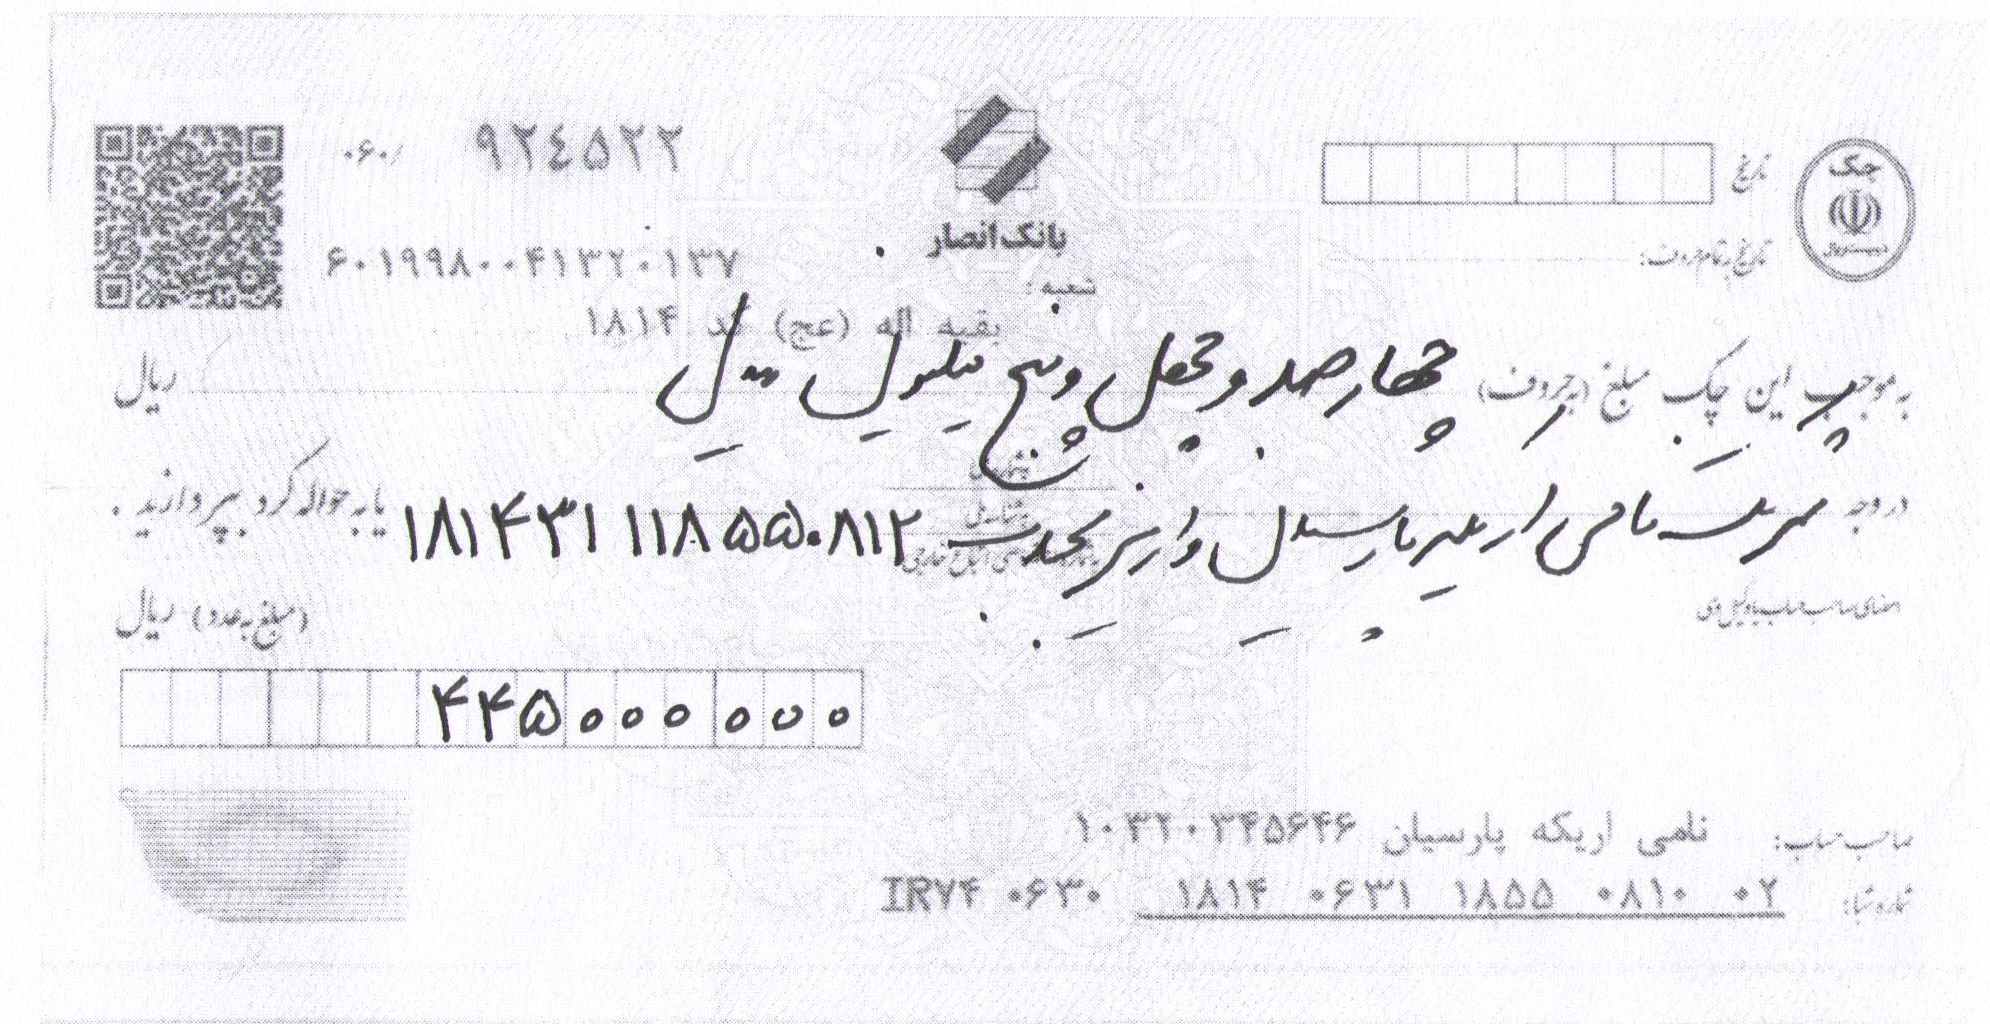 چک
تاریخ
بانک انصار
۹۲۴۵۲۲
۰۶۰/
تاریخ به تمام حروف:
۶۰۱۹۹۸۰۰۴۱۳۲۰۱۳۷
شعبه:
بقیه اله (عج) کد ۱۸۱۴
به موجب این چک مبلغ (به حروف) چهارصد و چهل و پنج میلیون ریال ریال
در وجه شرکت نامی اریکه پارسیان واریز بحساب ۱۸۱۴۳۱۱۱۸۵۵۰۸۱۲ یا به حواله کرد بپردازید.
شناسه ملی
امضای صاحب حساب یا وکیل وی
(مبلغ به عدد) ریال
۴۴۵۰۰۰۰۰۰
صاحب حساب: نامی اریکه پارسیان ۱۰۳۲۰۳۴۵۶۴۶
شماره شبا: IR۷۴ ۰۶۳۰ ۱۸۱۴ ۰۶۳۱ ۱۸۵۵ ۰۸۱۰ ۰۲